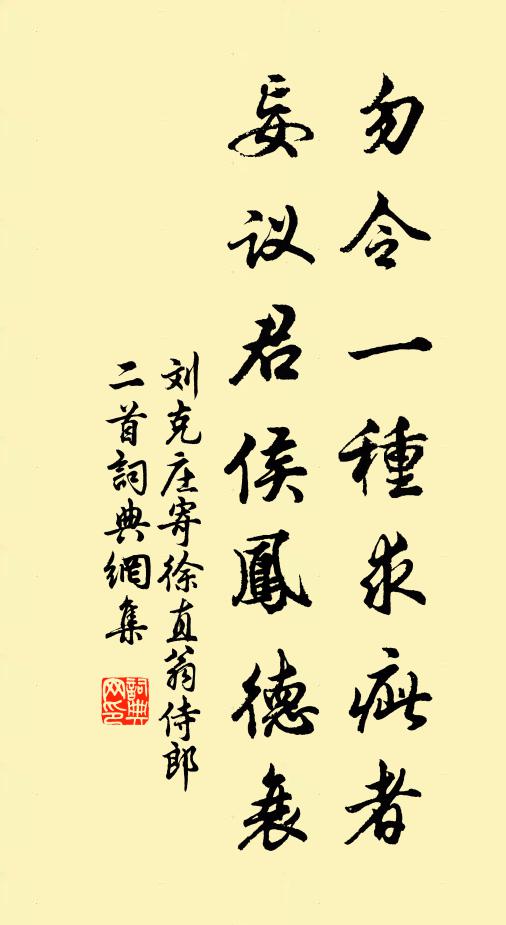 勿令一種求疵者
妄议君侯鳳德衰
刘克庄寄徐直翁侍郎
二首詞典網集
詞典网印